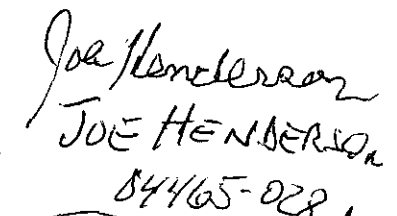 Joe Henderson
JOE HENDERSON
04465-028